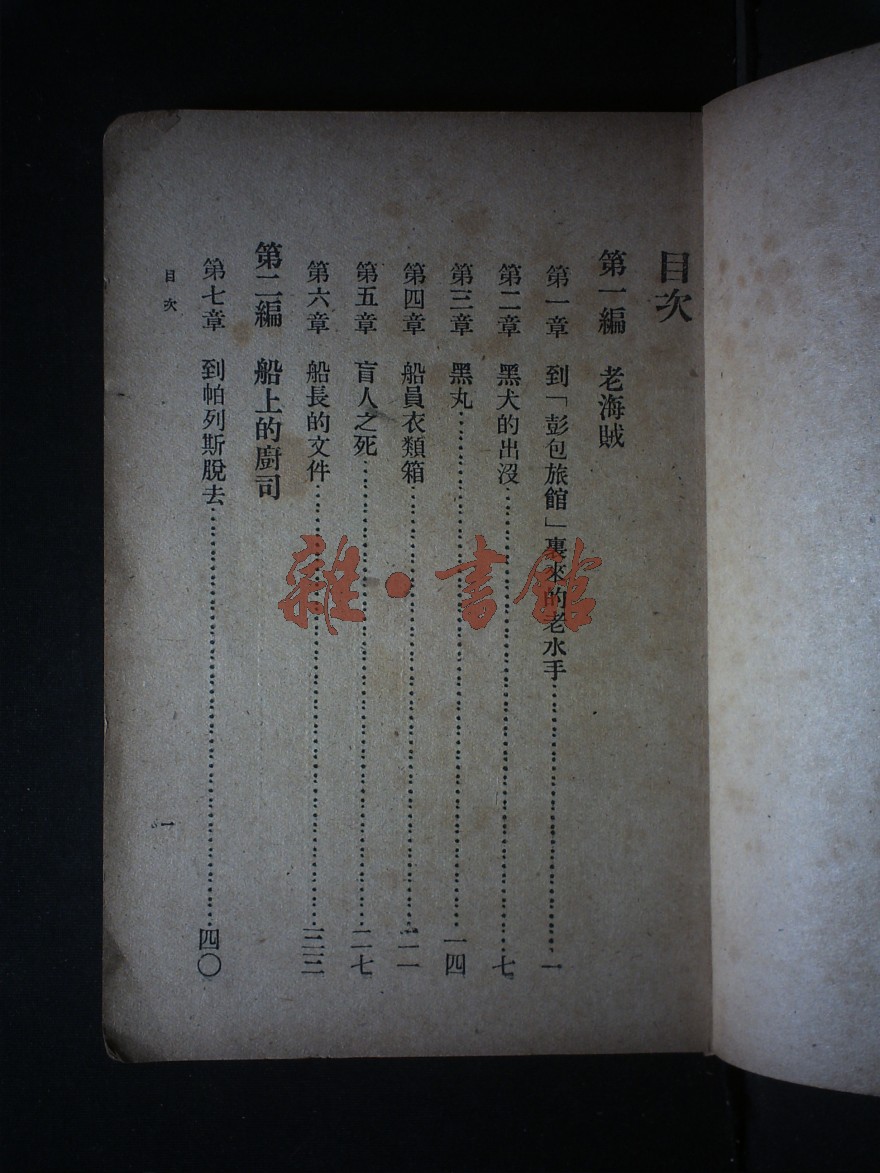 目次
第一編　老海賊
第一章　到「彭包旅館」裏來的老水手…………一
第二章　黑犬的出沒…………七
第三章　黑丸…………一四
第四章　船員衣類箱…………二一
第五章　盲人之死…………二七
第六章　船長的文件…………三三
第二編　船上的廚司
第七章　到帕列斯脫去…………四〇
目次
一
雜·書館